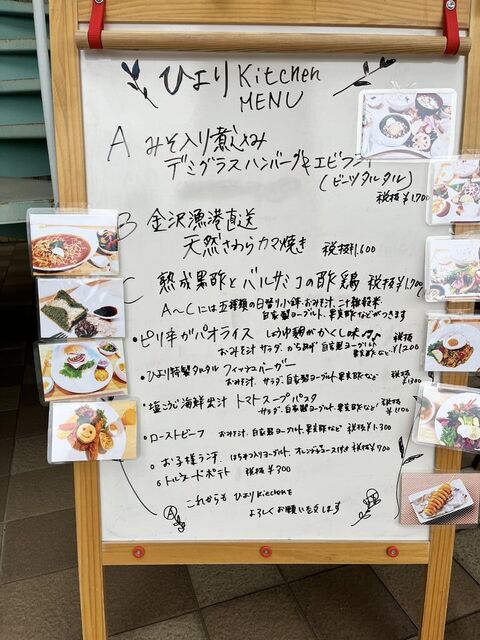 ひより Kitchen
MENU
A みそ入り煮込み
デミグラスハンバーグ&エビフライ
(ビーツタルタル)
税抜¥1,700
B 金沢漁港直送
天然さわらカマ焼き 税抜1,600
C 熟成黒酢とバルサミコの酢鶏 税抜¥1,700
A〜Cには五種類の日替り小鉢・おみそ汁、二十雑穀米
自家製ヨーグルト、果実酢などがつきます
・ピリ辛ガパオライス しょうゆ麹がかくし味♬♪ 税抜
おみそ汁 サラダ、から揚げ 自家製ヨーグルト ¥1200
果実酢など
・ひより特製タルタル フィッシュバーガー
おみそ汁、サラダ、自家製ヨーグルト、果実酢など 税抜
・塩こうじ海鮮出汁 トマトスープパスタ
サラダ、自家製ヨーグルト、果実酢など 税抜 ¥1,100
・ローストビーフ おみそ汁、自家製ヨーグルト、果実酢など 税抜¥1,300
o お子様ランチ はちみつ入りヨーグルト、オレンジジュース付き 税抜¥900
o トルネードポテト 税抜 ¥300
これからも ひより Kitchenを
よろしくお願い致します